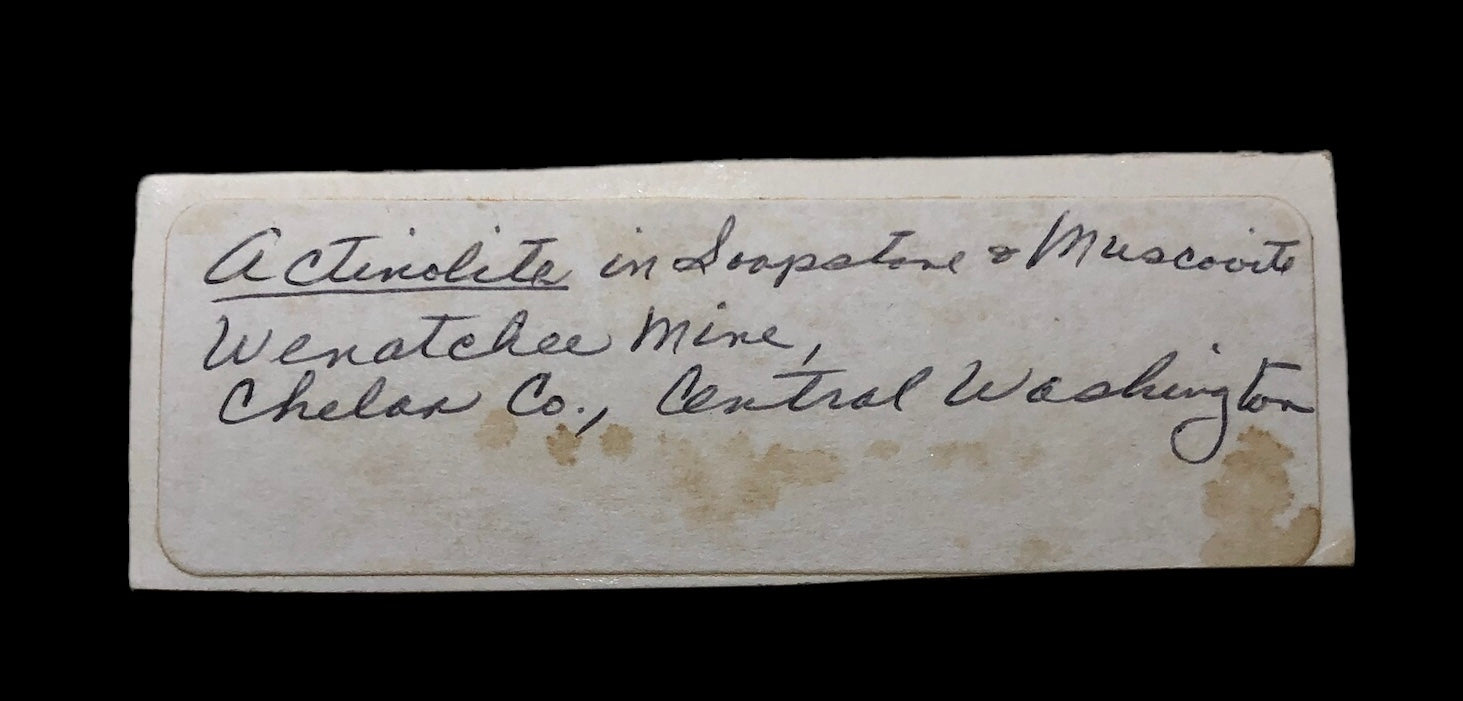 Actinolite in Soapstone & Muscovite
Wenatchee Mine,
Chelan Co., Central Washington